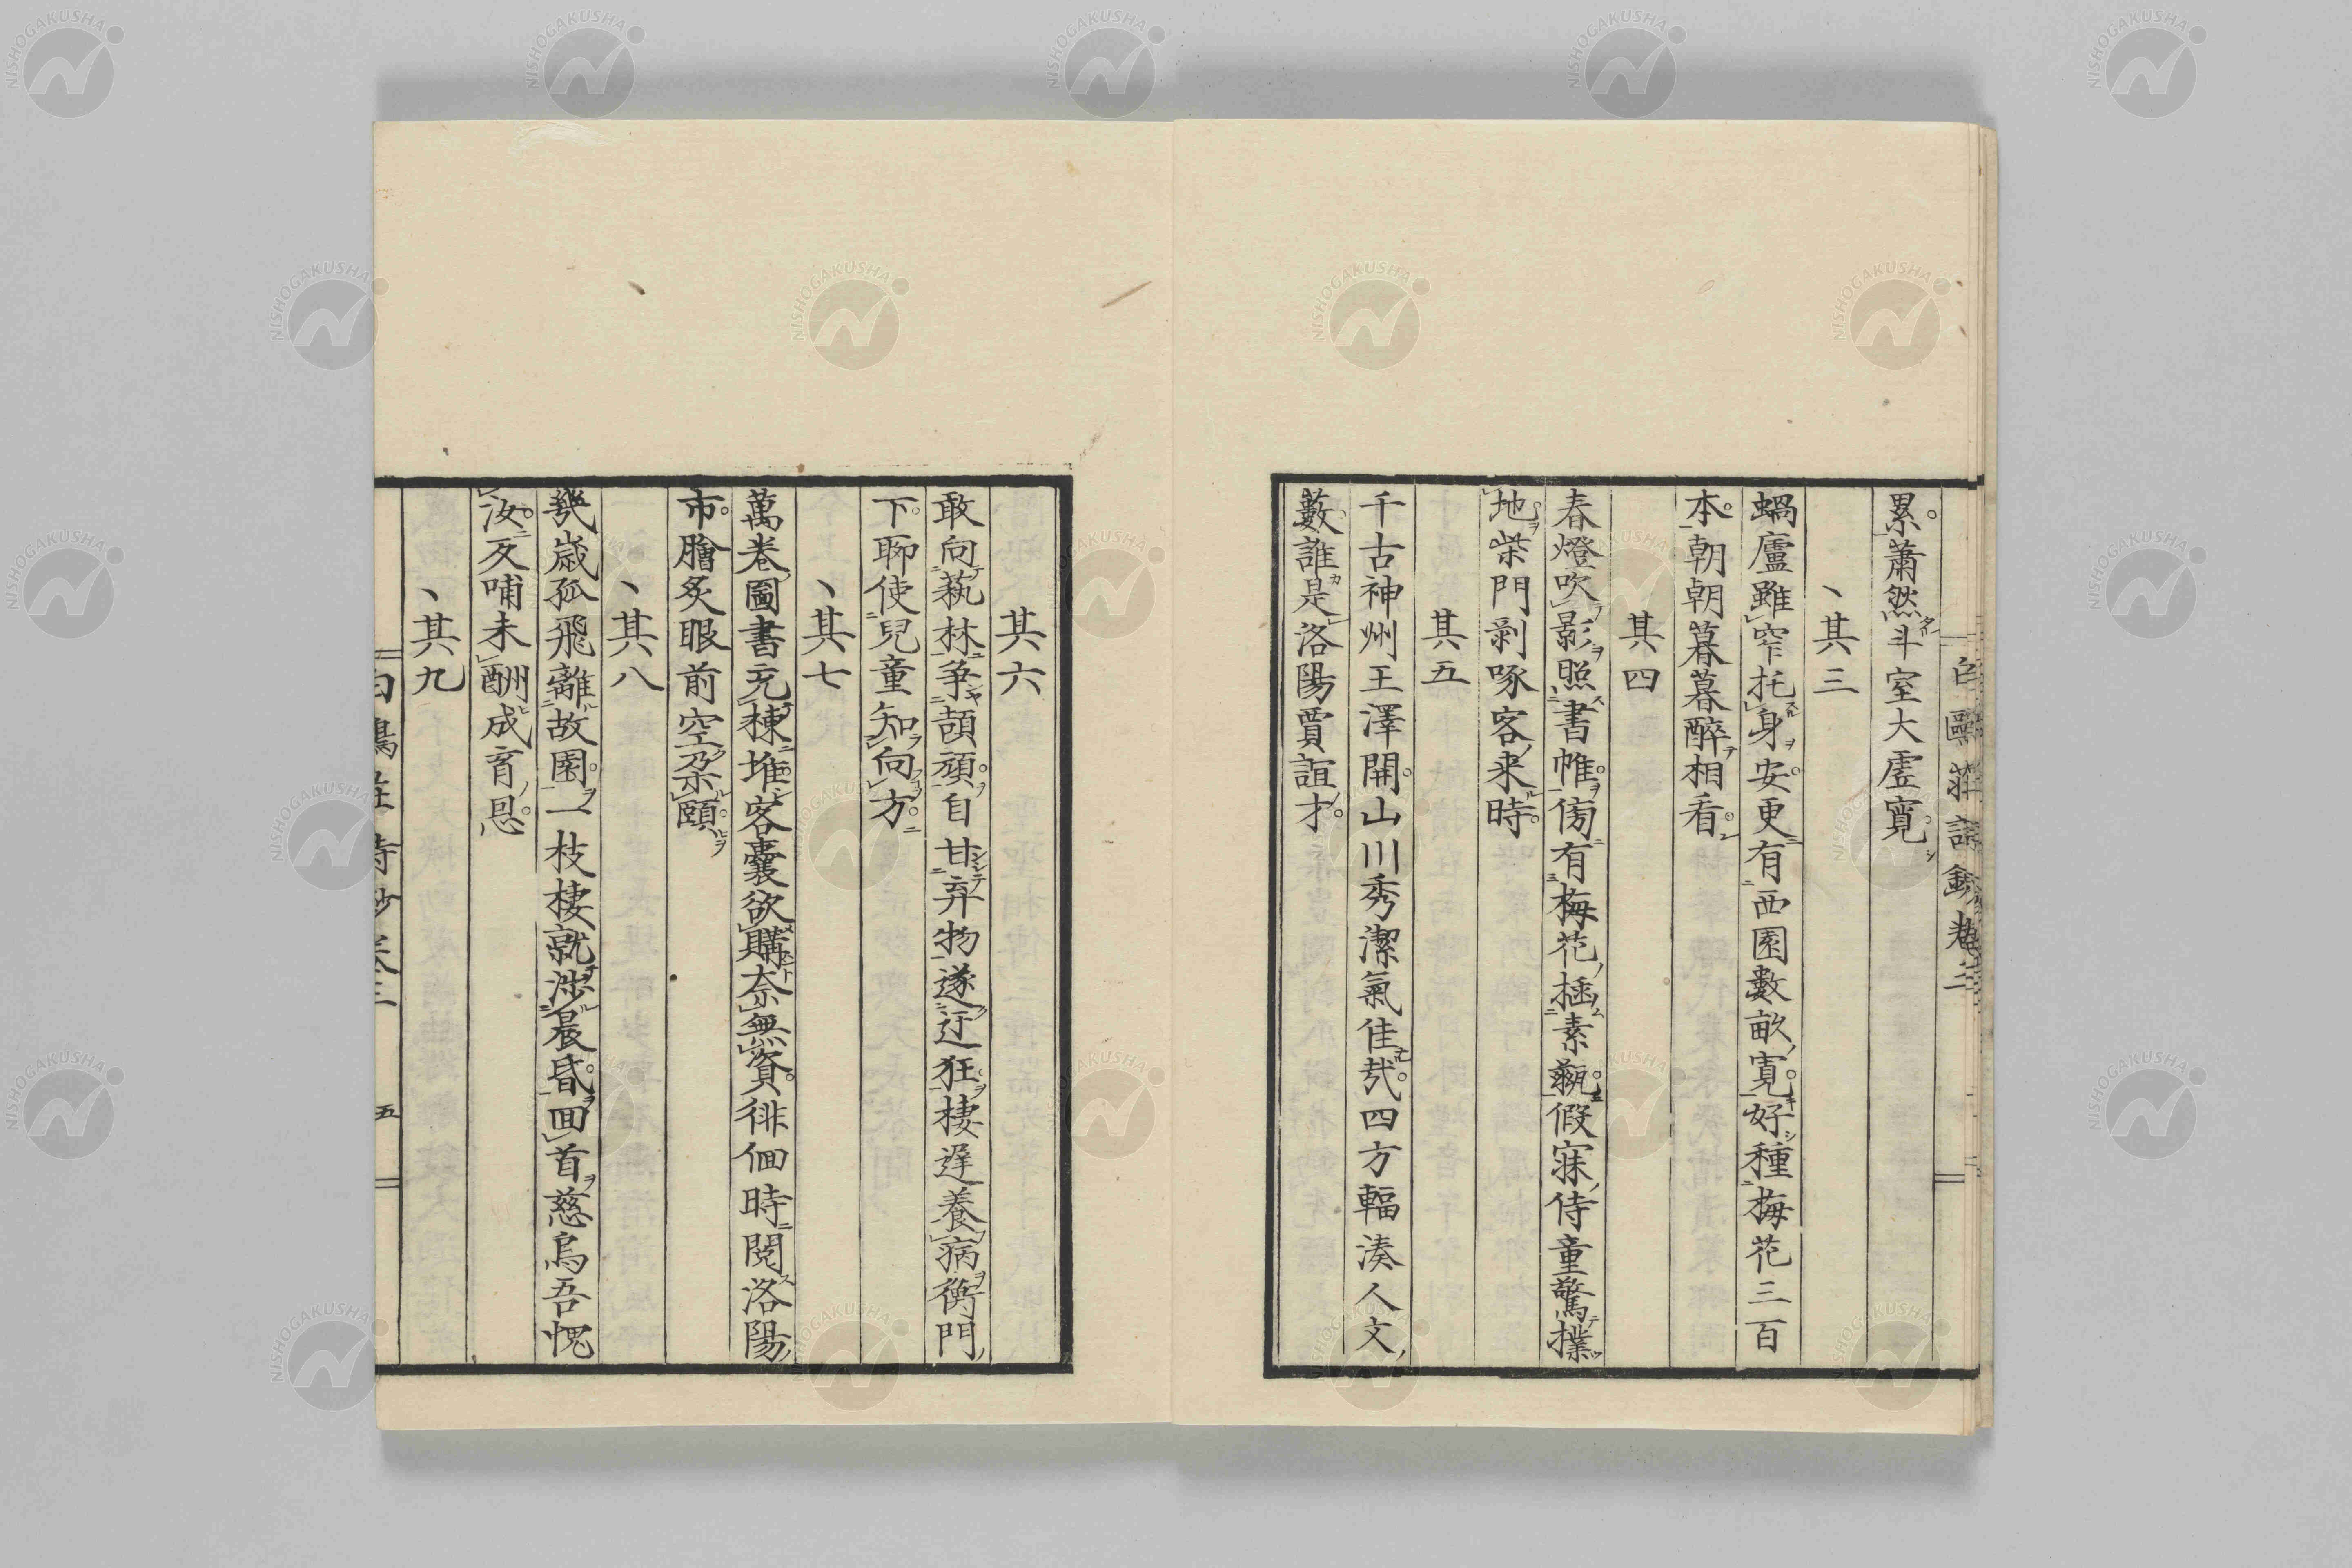 白鷗莊詩鈔卷三
累蕭然斗室大虛寬
、其三
蝸廬雖窄托身安更有西園數畝寬好種梅花三百
本朝朝暮暮醉相看
其四
春燈吹影照書帷傍有梅花插素甁假寐侍童驚撲
地柴門剥啄客来時
其五
千古神州王澤開山川秀潔氣佳哉四方輻湊人文
藪誰是洛陽賈誼才
其六
敢向藝林争頡頏自甘弃物遂迂狂棲遲養病衡門
下聊使兒童知向方
、其七
萬卷圖書充棟堆客囊欲購奈無資徘徊時閲洛陽
市膾炙眼前空朶頤
、其八
幾歳孤飛離故園一枝棲就涉晨昏回首慈烏吾愧
汝反哺未酬成育恩
、其九
白鷗莊詩鈔卷三 五
NISHOGAKUSHA